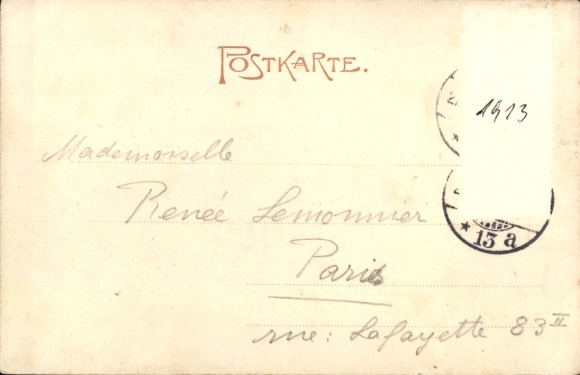 POSTKARTE.
1913
Mademoiselle
Renée Lemonnier
Paris
rue: Lafayette 83 II
* 13 a